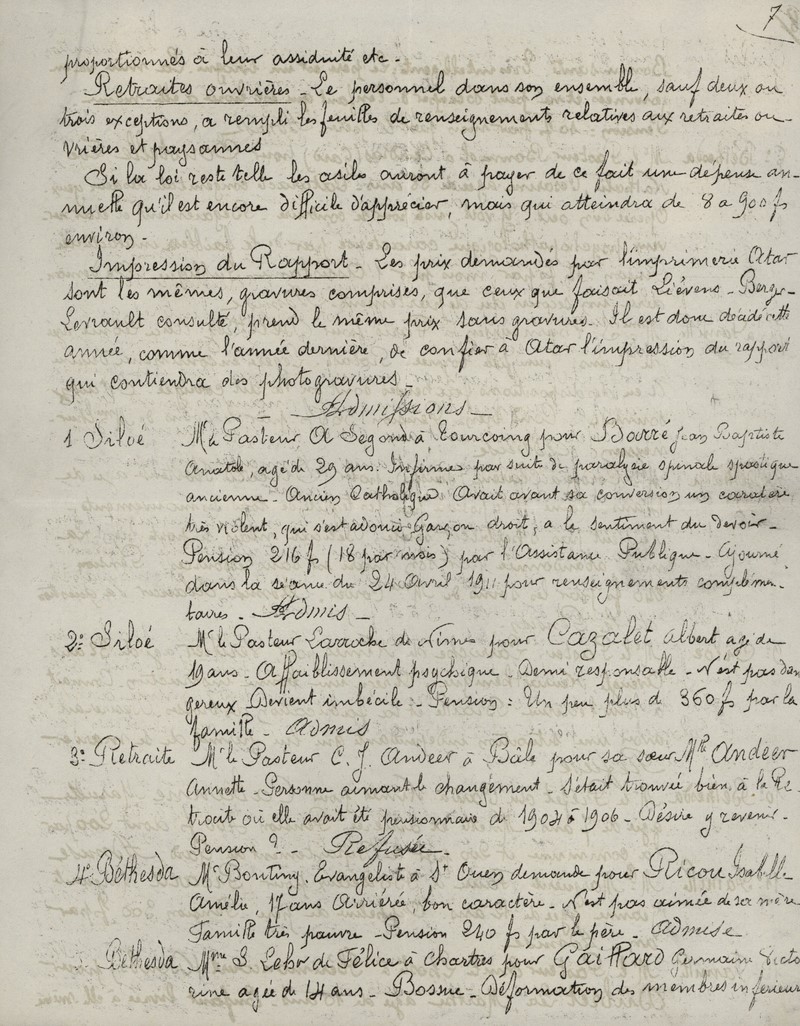 7
proportionnés à leur assiduité etc -
Retraites ouvrières - Le personnel dans son ensemble, sauf deux ou
trois exceptions, a rempli les feuilles de renseignements relatives aux retraites ou-
vrières et paysannes
Si la loi reste telle les asiles auront à payer de ce fait une dépense an-
nuelle qu'il est encore difficile d'apprécier, mais qui atteindra de 8 a 900 f
environ -
Impression du Rapport - Les prix demandés par l'imprimerie Atar
sont les mêmes, gravures comprises, que ceux que faisait Liévens - Berger-
Levrault consulté, prend le même prix sans gravures. Il est donc décidé cette
année, comme l'année dernière, de confier à Atar l'impression du rapport
qui contiendra des photogravures -
Admissions -
1 Siloé Mr le Pasteur A Segond à Tourcoing pour Barré Jean Baptiste
Anatole, agé de 29 ans. Infirme par suite de paralysie spinale spastique
ancienne - Ancien Catholique Avait avant sa conversion un caractère
très violent, qui s'est adouci - Garçon droit, a le sentiment du devoir -
Pension 216 f (18 par mois) par l'Assistance Publique - Ajourné
dans la séance du 24 Avril 1911 pour renseignements complémen-
taires - Admis -
2º Siloé Mr le Pasteur Larroche de Nimes pour Cazalet Albert agé de
19 ans - Affaiblissement psychique - Demi responsable - N'est pas dan
gereux Devient imbécile - Pension : Un peu plus d 360 f par la
famille - Admis
3º Retraite Mr le Pasteur C. J. Andeer à Bâle pour sa sœur Mlle Andeer
Annette - Personne aimant le changement - S'était trouvée bien à la Re-
traite où elle avait été pensionnaire de 1904 à 1906 - Désire y revenir -
Pension ? - Refusée -
4º Béthesda Mr Bontiny. Evangeliste à St Ouen demande pour Ricou Isabelle
Amélie, 17 ans Arriérée, bon caractère - N'est pas aimée de sa mère
Famille très pauvre - Pension 240 f par le père - Admise
Béthesda Mme S Lehr de Félice à Chartres pour Gaillard Germaine Victo
rine agée de 14 ans - Bossue - Déformation des membres inférieur